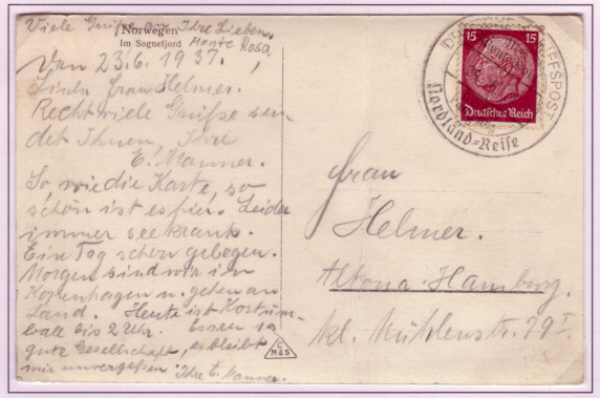 Viele Grüße an Ihre Lieben.
Norwegen
Im Sognefjord
Monte Rosa
Den 23.6.1937.
Liebe Frau Helmer.
Recht viele Grüße sen-
det Ihnen, Ihre
E. Manner.
So, wie die Karte, so
schön ist es hier. Leider
immer seekrank.
Ein Tag schon gelegen.
Morgen sind wir in
Kopenhagen u. gehen an
Land. Heute ist Kostüm-
ball bis 2 Uhr. Essen
gute Gesellschaft, es bleibt
mir unvergeßen Ihre E. Manner.
15 15
Deutsches Reich
DEUTSCHE SCHIFFSPOST
Nordland=Reise
Frau
Helmer.
Altona-Hamburg.
kl. Mühlenstr. 79 I
C
M&S